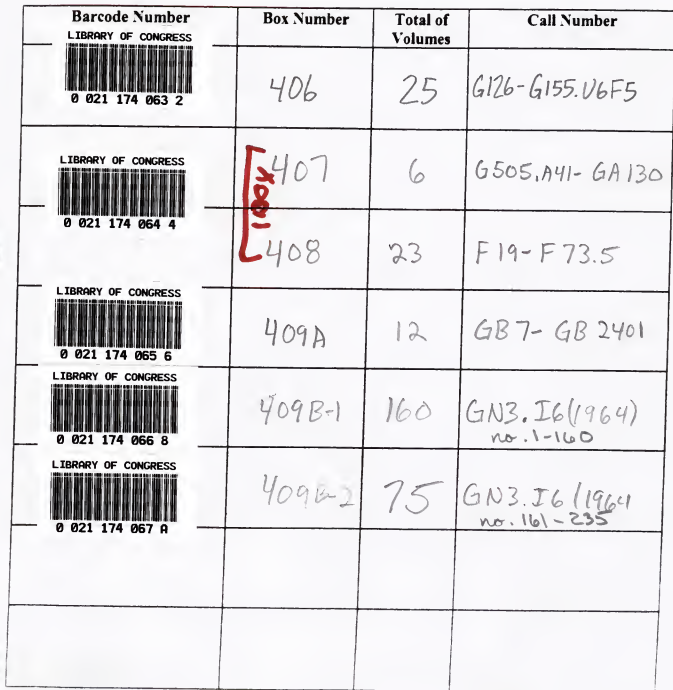 Barcode Number Box Number Total of Volumes Call Number
LIBRARY OF CONGRESS
0 021 174 063 2
406 25 G126-G155.U6F5
LIBRARY OF CONGRESS
0 021 174 064 4
407 6 G505.A41-GA130
1 BOX
408 23 F19-F73.5
LIBRARY OF CONGRESS
0 021 174 065 6
409A 12 GB7-GB 2401
LIBRARY OF CONGRESS
0 021 174 066 8
409B-1 160 GN3.I6(1964)
no.1-160
LIBRARY OF CONGRESS
0 021 174 067 A
409B-2 75 GN3.I6(1964
no.161-235